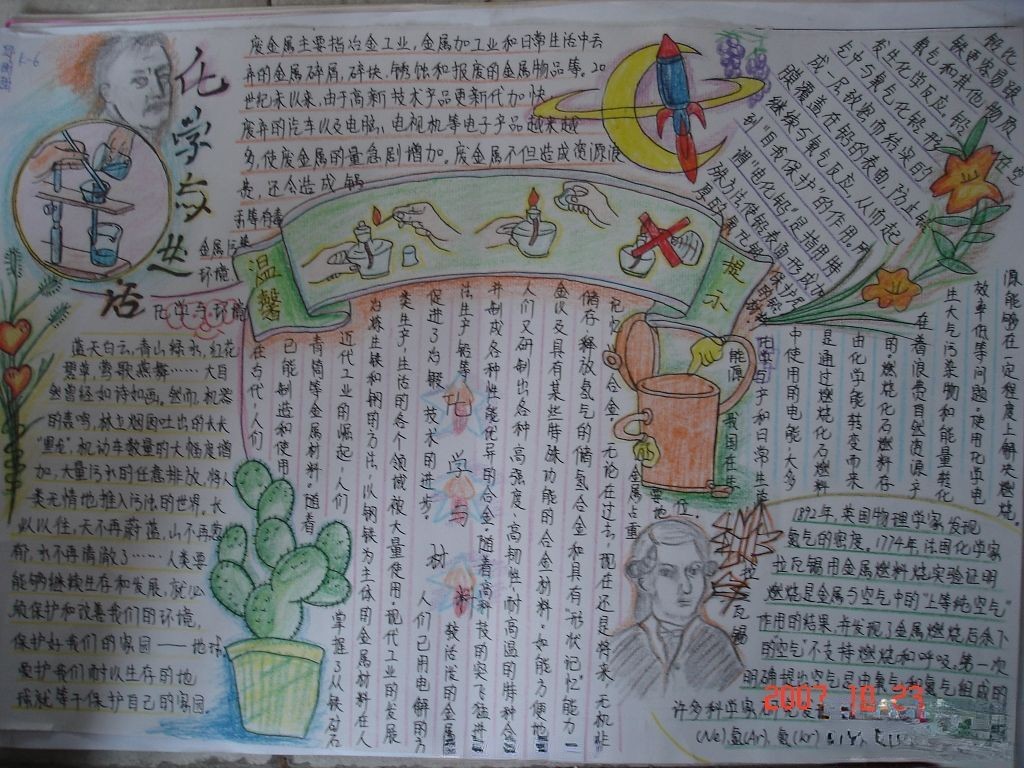 化学与生活
废金属主要指冶金工业，金属加工业和日常生活中丢
弃的金属碎屑，碎块，锈蚀和报废的金属物品等。20
世纪末以来，由于高新技术产品更新代加快
废弃的汽车以及电脑，电视机等电子产品越来越
多，使废金属的量急剧增加。废金属不但造成资源浪
费，还会造成镉
汞等有毒
金属污染
环境
化学与环境
蓝天白云，青山绿水，红花
碧草，莺歌燕舞……大自
然曾经如诗如画。然而，机器
的轰鸣，林立烟囱吐出的长长
"黑龙"，机动车数量的大幅度增
加，大量污水的任意排放，将人
类无情地推入污浊的世界。长
此以往，天不再蔚蓝，山不再葱
郁，水不再清澈了……人类要
能够继续生存和发展，就必
须保护和改善我们的环境，
保护好我们的家园——地球
爱护我们耐以生存的地
球就等于保护自己的家园。
温馨
提示
化学与材料
在古代，人们
已能制造和使用
青铜等金属材料。随着
近代工业的崛起，人们
掌握了从铁矿石
冶炼生铁和钢的方法，以钢铁为主体的金属材料在人
类生产，生活的各个领域被大量使用。现代工业的发展
促进了冶锻技术的进步。
人们已用电解的方
法生产铝等
较活泼的金属
并制成各种性能优异的合金。随着高科技的突飞猛进
人们又研制出各种高强度，高韧性，耐高温的特种合
金以及具有某些特殊功能的合金材料。如能方便地
储存，释放氢气的储氢合金和具有"形状记忆"能力
记忆合金，无论在过去，现在还是将来，无机非
金属占重
要地
位。
铝比
铁更容易跟
氧气和其他物质
发生化学反应。铝在空
气中与氧气化铝形
成一层致密而结实的
膜覆盖在铝的表面，防止铝
继续与氧气反应，从而起
到"自我保护"的作用。所
谓"电化铝"是指用特
殊方法使铝表面形成加
能源
我国在生
化学与产和日常生活
中使用的电能，大多
是通过燃烧化石燃料
由化学能转变而来
的。燃烧化石燃料存
在着浪费自然资源，产
生大气污染物和能量转化
效率低等问题。使用化学电
源能够在一定程度上解决燃烧。
拉瓦锡
1892年，英国物理学家发现
氮气的密度。1774年，法国化学家
拉瓦锡用金属燃料烧实验证明
燃烧是金属与空气中的"上等纯空气"
作用的结果，并发现了金属燃烧后余下
的"空气"不支持燃烧和呼吸，第一次
明确提出空气是由氧气和氮气组成的
许多科学家
(Ne)氩(Ar)，氪(Kr)
2007 10 23